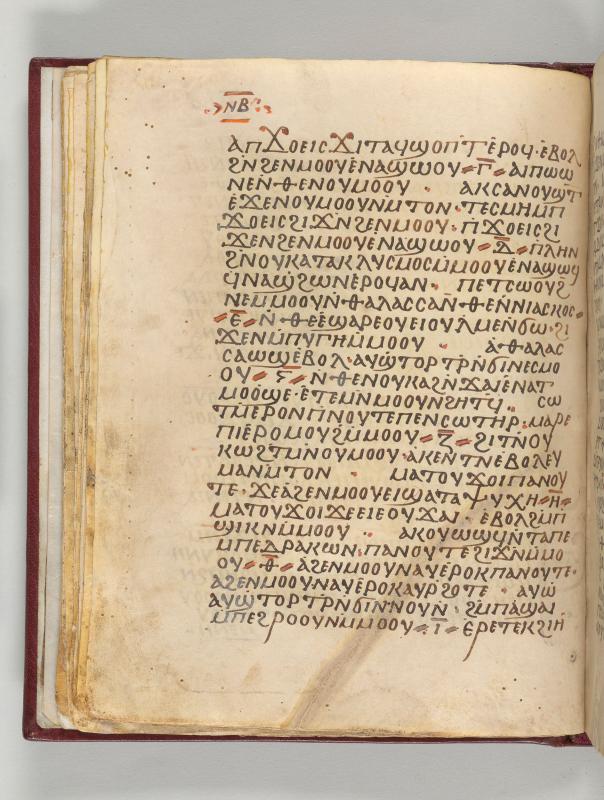 ⲛⲃ
ⲁⲡϪⲟⲉⲓⲥ ϫⲓⲧⲁϥϣⲟⲡⲧ ⲉⲣⲟϥ· ⲉⲃⲟⲗ
ϩⲛϩⲉⲛⲙⲟⲟⲩ ⲉⲛⲁϣⲱⲟⲩ ⸗ ⲅ̅ ⸗ ⲁⲓⲡⲱⲱ
ⲛⲉ ⲛ̇ⲑⲉⲛⲟⲩⲙⲟⲟⲩ · ⲁⲕⲥⲁⲛⲟⲩⲱⲧ
ⲉϫⲉⲛⲟⲩⲙⲟⲟⲩⲛⲙⲧⲟⲛ · ⲧⲉⲥⲙⲏⲙⲡ
ϫⲟⲉⲓⲥϩⲓϫⲛϩⲉⲛⲙⲟⲟⲩ · ⲡϫⲟⲉⲓⲥϩⲓ
ϫⲉⲛϩⲉⲛⲙⲟⲟⲩ ⲉⲛⲁϣⲱⲟⲩ ⸗ ⲇ̅ ⸗ ⲡⲗⲏⲛ
ϩⲛⲟⲩⲕⲁⲧⲁⲕⲗⲩⲥⲙⲟⲥⲙ̇ⲙⲟⲟⲩ ⲉⲛⲁϣⲱϥ
ϥⲛⲁϣ̇ϩⲱⲛ ⲉⲣⲟϥⲁⲛ · ⲡⲉⲧⲥⲱⲟⲩϩ
ⲛⲉⲙⲙⲟⲟⲩⲛ̇ⲑⲁⲗⲁⲥⲥⲁ ⲛ̇ⲑⲉⲛⲛⲓⲁⲥⲕⲟⲥ ⸗
⸗ ⲉ̅ ⸗ ⲛ̇ⲑⲉ ⲉϣⲁⲣⲉⲟⲩⲉⲓⲟⲩⲗ ⲙⲉⲛϭⲱ· ϩⲓ
ϫⲉⲛⲙ̇ⲡⲩⲅⲏⲙ̇ⲙⲟⲟⲩ · ⲁ̇ⲑⲁⲗⲁⲥ
ⲥⲁⲱϣ ⲉⲃⲟⲗ· ⲁⲩⲱ̇ⲧⲟⲣⲧⲣ̇ⲛ̇ϭⲓⲛⲉⲥⲙⲟ
ⲟⲩ ⸗ ⲋ̅ ⸗ ⲛ̇ⲑⲉⲛⲟⲩⲕⲁϩⲛ̇ϫⲁⲓⲉⲛⲁⲧ
ⲙⲟⲟϣⲉ· ⲉⲧⲉⲙⲛ̇ⲙⲟⲟⲩⲛϩⲏⲧϥ · ⲥⲱ
ⲧⲙ̇ ⲉⲣⲟⲛⲡⲛⲟⲩⲧⲉⲡⲉⲛⲥⲱⲧⲏⲣ· ⲙⲁⲣⲉ
ⲡⲓⲉⲣⲟⲙⲟⲩϩⲙ̇ⲙⲟⲟⲩ ⸗ ⲍ̅ ⸗ ϩⲓⲧⲛⲟⲩ
ⲕⲱϩⲧⲙⲛⲟⲩⲙⲟⲟⲩ· ⲁⲕⲉⲛⲧⲛ ⲉⲃⲟⲗ ⲉⲩ
ⲙⲁⲛⲙ̇ⲧⲟⲛ · ⲙⲁⲧⲟⲩϫⲟⲓⲡⲁⲛⲟⲩ
ⲧⲉ· ϫⲉⲁϩⲉⲛⲙⲟⲟⲩ ⲉⲓϣⲁⲧⲁⲯⲩⲭⲏ ⸗ ⲏ̅ ⸗
ⲙⲁⲧⲟⲩϫⲟⲓϫⲉ ⲉⲓⲉⲟⲩϫⲁⲓ · ⲉⲃⲟⲗϩⲙⲡ
ϣⲓⲕⲛ̇ⲙⲟⲟⲩ · ⲁⲕⲟⲩⲱϣϥⲛ̇ⲧⲁⲡⲉ
ⲙⲡⲉⲇⲣⲁⲕⲱⲛ· ⲡⲁⲛⲟⲩⲧⲉϩⲓϫⲛ̇ⲙⲙⲟ
ⲟⲩ ⸗ ⲑ̅ ⸗ ⲁϩⲉⲛⲙⲟⲟⲩⲛⲁⲩ ⲉⲣⲟⲕⲡⲁⲛⲟⲩⲧⲉ·
ⲁϩⲉⲛⲙⲟⲟⲩⲛⲁⲩ ⲉⲣⲟⲕⲁⲩⲣϩⲟⲧⲉ · ⲁⲩⲱ̇
ⲁⲩϣ̇ⲧⲟⲣⲧⲣ̇ⲛϭⲓⲛⲛⲟⲩⲛ · ϩⲙⲡⲁϣⲁⲓ
ⲙ̇ⲡⲉϩⲣⲟⲟⲩⲛⲙⲙⲟⲟⲩ ⸗ ⲓ̅ ⸗ ⲉⲣⲉⲧⲉⲕϩⲓⲏ